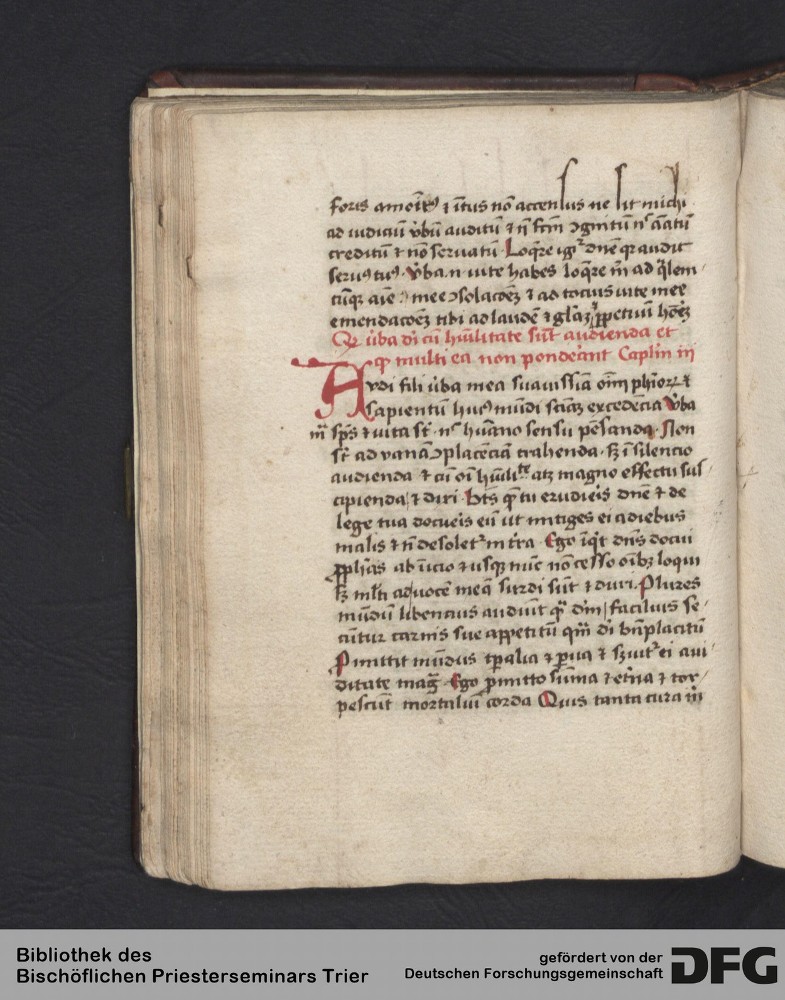 foris amoit9 ⁊ ītus nō accensus ne sit michi
ad iudiciū v̄bū auditū ⁊ n̄ fc̄m ɔgnitū nͨ amatū
creditū ⁊ nō servatū Loq̄re igͬ dn̄e qꝛ audit
servus tuus v̄ba n vite habes loq̄re m̄ ad q̄lem
cūqꝫ aīe mee ɔsolacōeꝫ ⁊ ad tocius vite mee
emendacōeꝫ tibi ad laudē ⁊ gl̄aꝫ ꝑpetuū hōēꝫ
Q v̄ba di cū hūilitate sūt audienda et
ꝙ multi ea non ponderant Caplm iii
Audi fili v̄ba mea suauissīa oīm ph̄ioꝝ ⁊
sapientū huiꝰ mūdi sciāꝫ excedēcia v̄ba
m̄ sps̄ ⁊ vita st̄ nͨ hūano sensu pēsanda Non
st̄ ad vanā ɔplacēciā trahenda sꝫ ī silencio
audienda ⁊ cū oī hūiliᵗᵉ atqꝫ magno effectu sus
cipienda ⁊ diri Bt̄s quē tu erudieis dn̄e ⁊ de
lege tua docueis eū ut mitiges ei a diebus
malis ⁊ n̄ desoletͬ in tr̄a Ego īqt dn̄s docui
ꝓph̄as ab īicio ⁊ usqꝫ nūc nō cesso oībꝫ loqui
sꝫ ml̄ti ad vocē meā surdi sūt ⁊ duri Plures
mūdū libencius audiūt qͣ dm̄ facilius se
cūtur carnis sue appetitū qͣm di bn̄placitū
Pmittit mūdus tp̄alia ⁊ ꝑua ⁊ s̄uitͬ ei aui
ditate mag̃ Ego ꝓmitto sūma ⁊ et̄na ⁊ tor
pescūt mortaliū corda Quis tanta cura m̄
Bibliothek des
Bischöflichen Priesterseminars Trier
gefördert von der
Deutschen Forschungsgemeinschaft
DFG